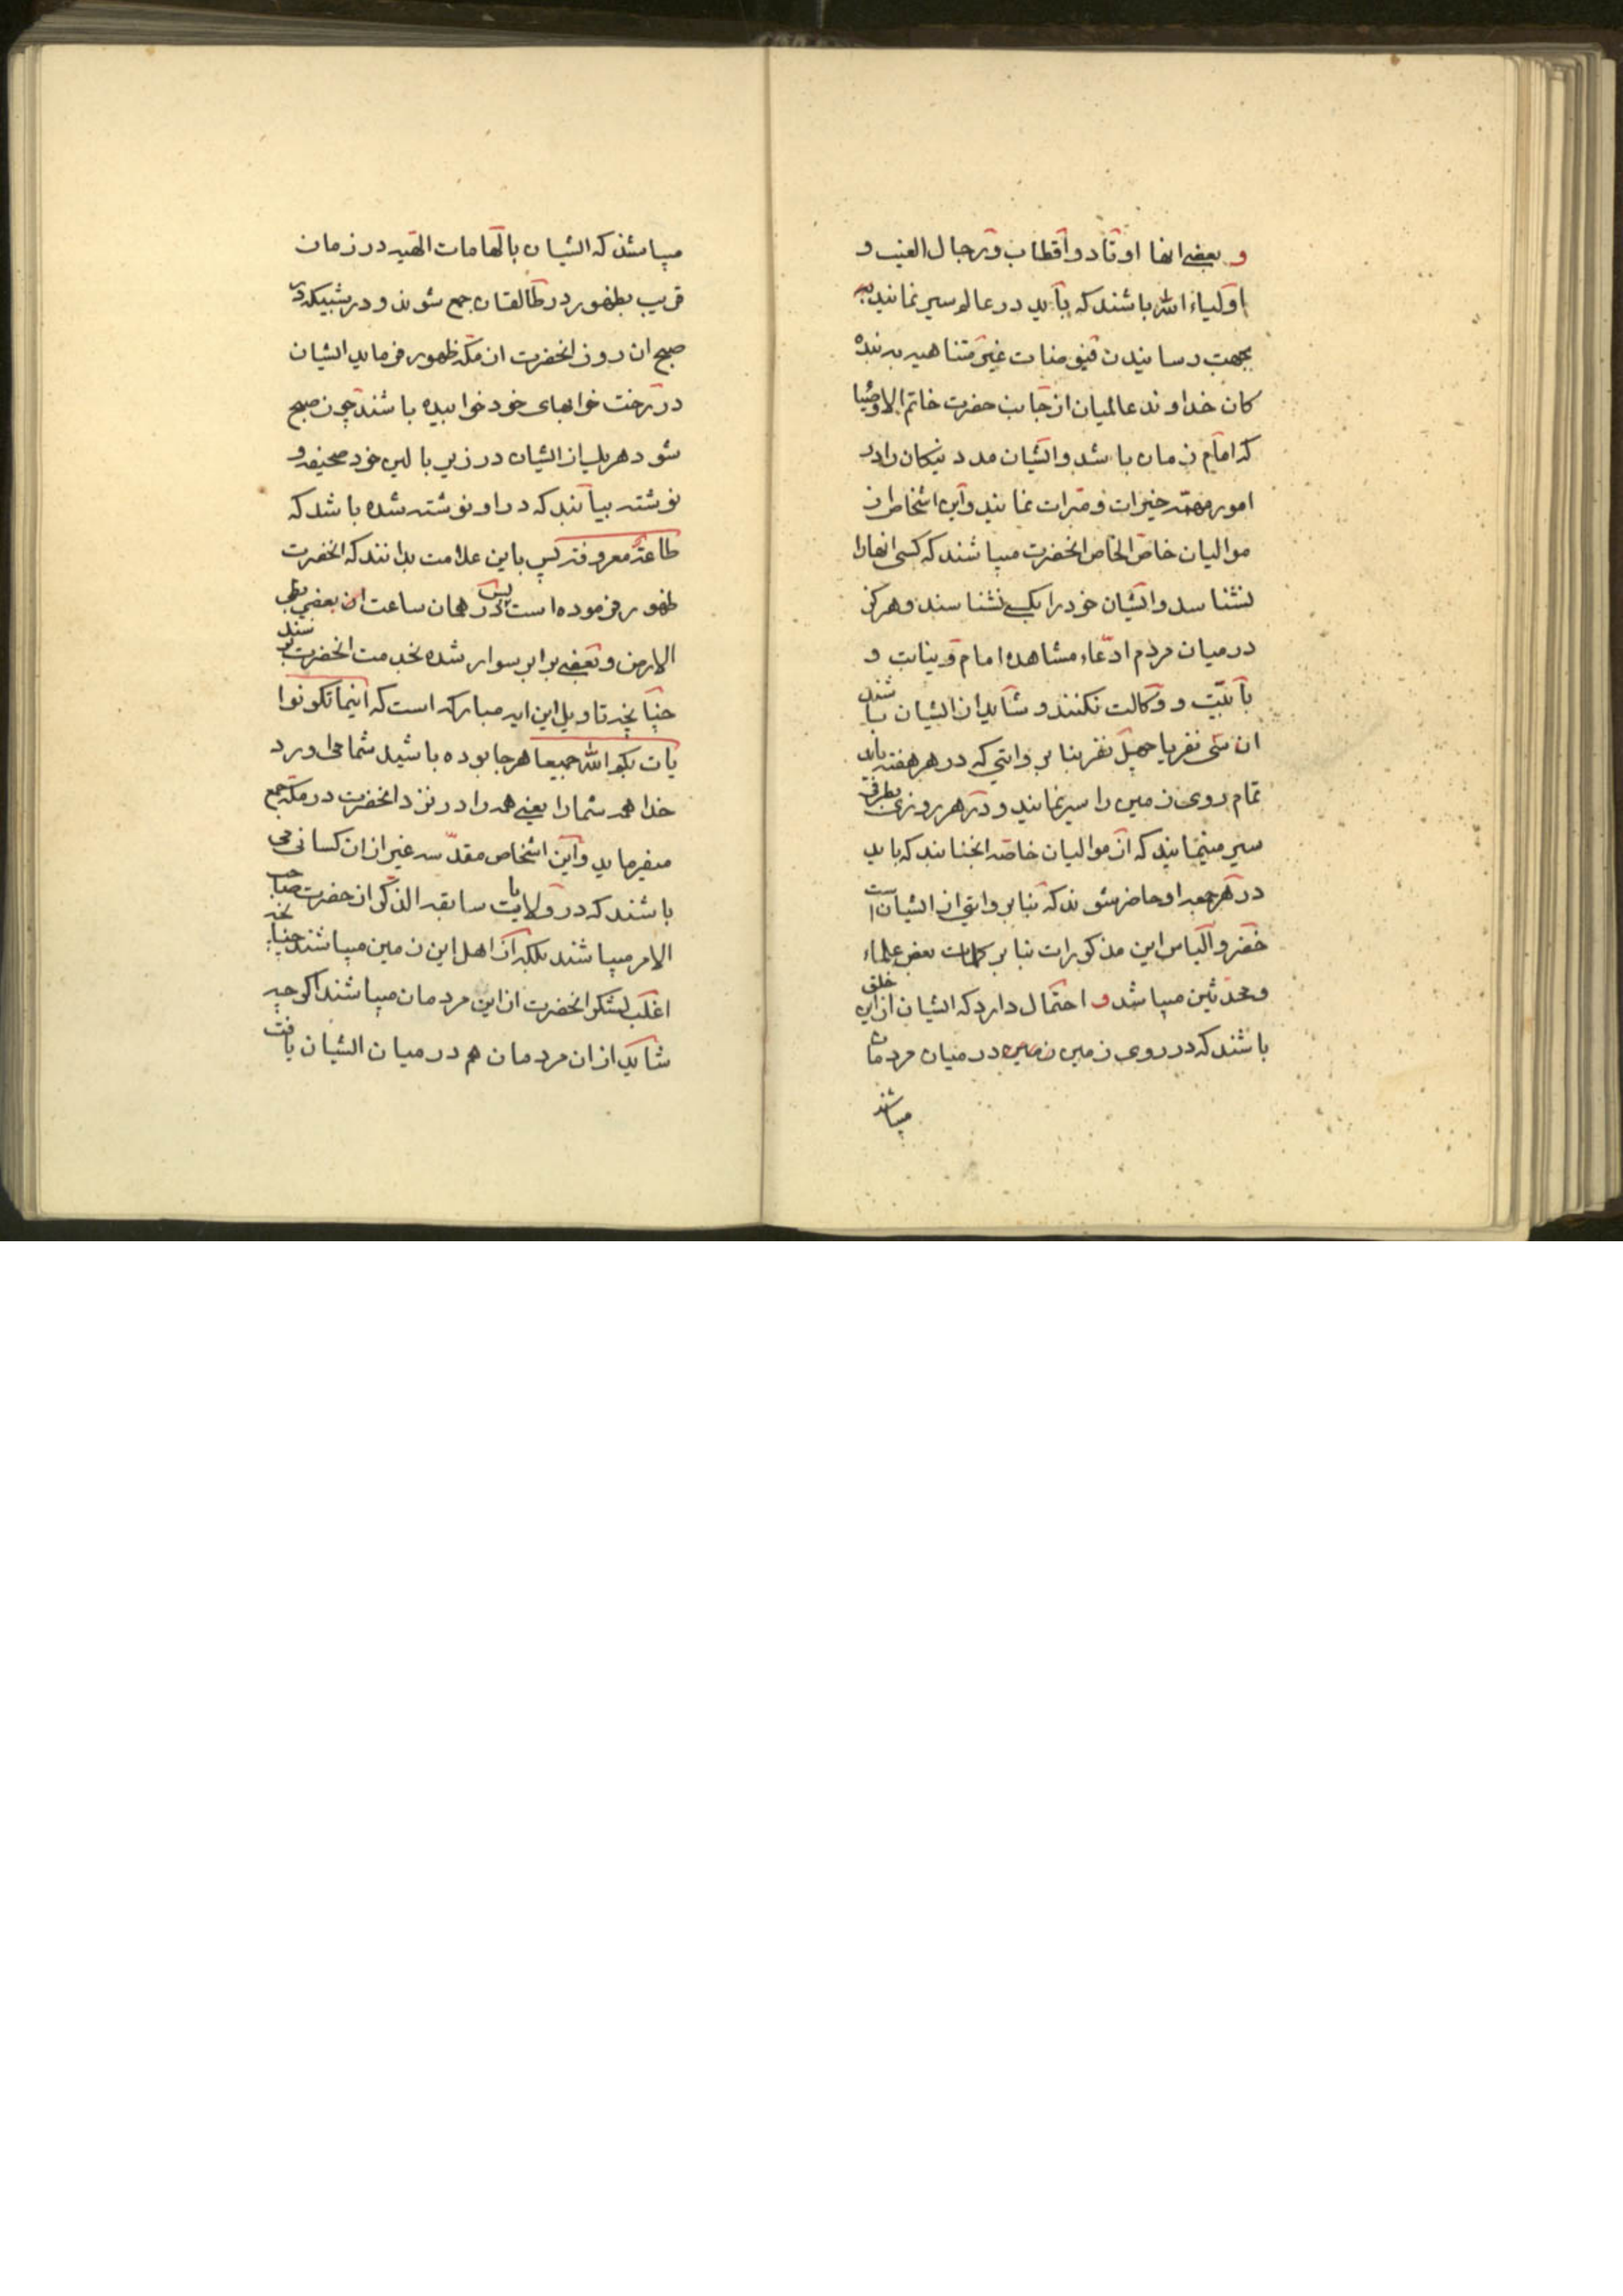 و بعضی انها اوتاد و اقطاب و رجال الغیب و
اولیاء الله باشند که باید در عالم سیر نمایند به
بجهت رسانیدن فیوضات غیر متناهیه به بنده
کان خداوند عالمیان از جانب حضرت خاتم الاوصیا
که امام زمان باشد و ایشان مدد نیکان را در
امور مهمّه خیرات و مبرات نمایند و این اشخاص از
موالیان خاصّ الخاص انحضرت میباشند که کسی انها را
نشناسد و ایشان خود را بکسی نشناسند و هرکز
در میان مردم ادّعاء مشاهده امام و نیابت و
بابیّت و وکالت نکنند و شاید از ایشان باشند
ان سی نفر یا چهل نفر بنابر روایتی که در هر هفته باید
تمام روی زمین را سیر نمایند و در هر روزی بطرفی
سیر مینمایند که از موالیان خاصّه انجنابند که باید
در هر جمعه او حاضر شوند که بنابر روایتی از ایشان است
خضر و الیاس این مذکورات بنابر کلمات بعض علماء
و محدّثین میباشد و احتمال دارد که ایشان از این خلق
باشند که در روی زمین زمین در میان مردمان
میباشند
میباشند که ایشان بالهامات الهیه در زمان
قریب بظهور در طالقان جمع شوند و در شبیکه در
صبح ان روز انحضرت از مکّه ظهور فرماید ایشان
در رخت خوابهای خود خوابیده باشند چون صبح
شود هریک از ایشان در زیر بالین خود صحیفه و
نوشته بیابند که در او نوشته شده باشد که
طاعةٌ معروفة پس باین علامت بدانند که انحضرت
ظهور فرموده است پس در همان ساعت از بعضی بطی
الارض و بعضی بر ابر سوار شده بخدمت انحضرت برسند
چنانچه تاویل این ایه مبارکه است که اینما تکونوا
یات بکم الله جمیعا هر جا بوده باشید شما می اورد
خدا همه شما را یعنی همه را در نزد انحضرت در مکّه جمع
میفرماید و این اشخاص مقدّسه غیر از ان کسانی می
باشند که در ولایات سابقه الذکر از حضرت صاحب
الامر میباشند بلکه از اهل این زمین میباشند چنانچه
اغلب لشکر انحضرت از این مردمان میباشند اکرچه
شاید از ان مردمان هم در میان ایشان یافت